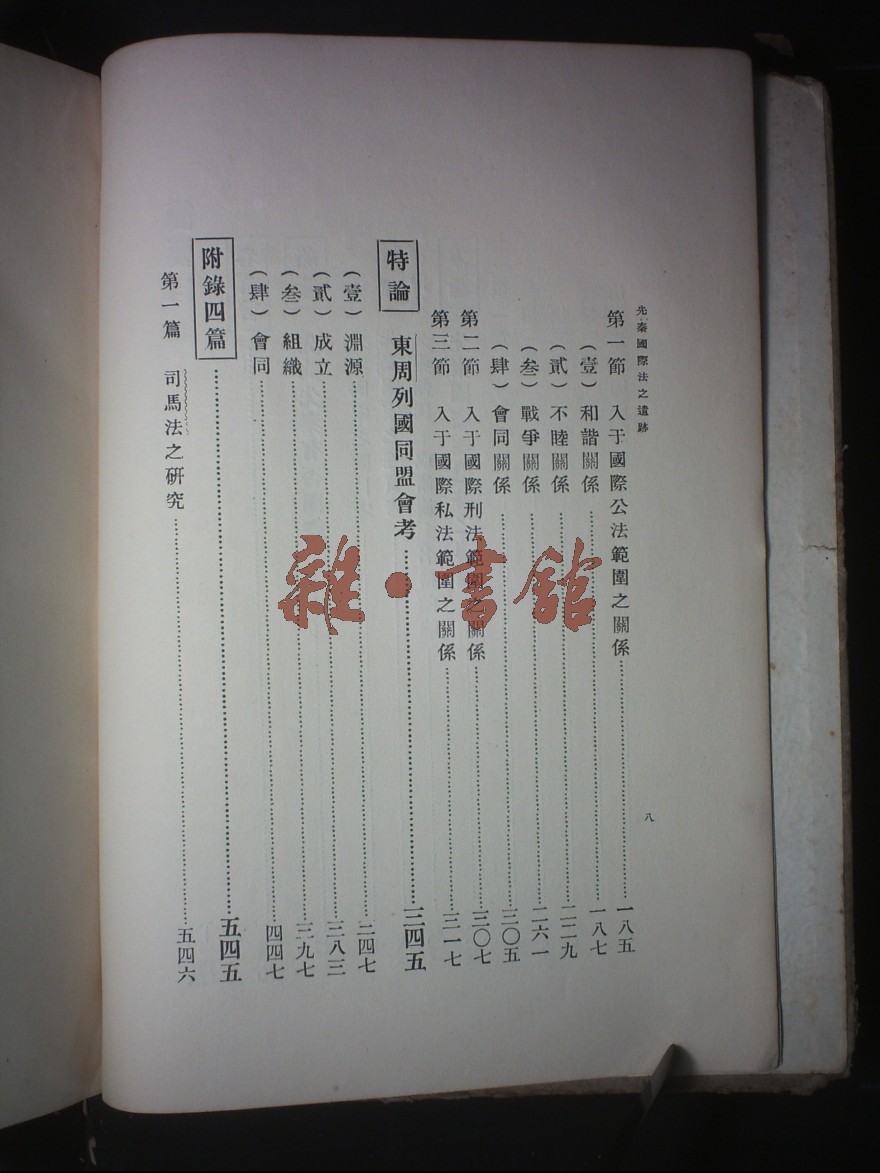 先秦國際法之遺跡
八
第一節 入于國際公法範圍之關係……一八五
(壹)和諧關係……一八七
(貳)不睦關係……二二九
(叁)戰爭關係……二六一
(肆)會同關係……三〇五
第二節 入于國際刑法範圍之關係……三〇七
第三節 入于國際私法範圍之關係……三一七
特論 東周列國同盟會考……三四五
(壹)淵源……二四七
(貳)成立……三八三
(叁)組織……三九七
(肆)會同……四四七
附錄四篇……五四五
第一篇 司馬法之研究……五四六
雜·書館